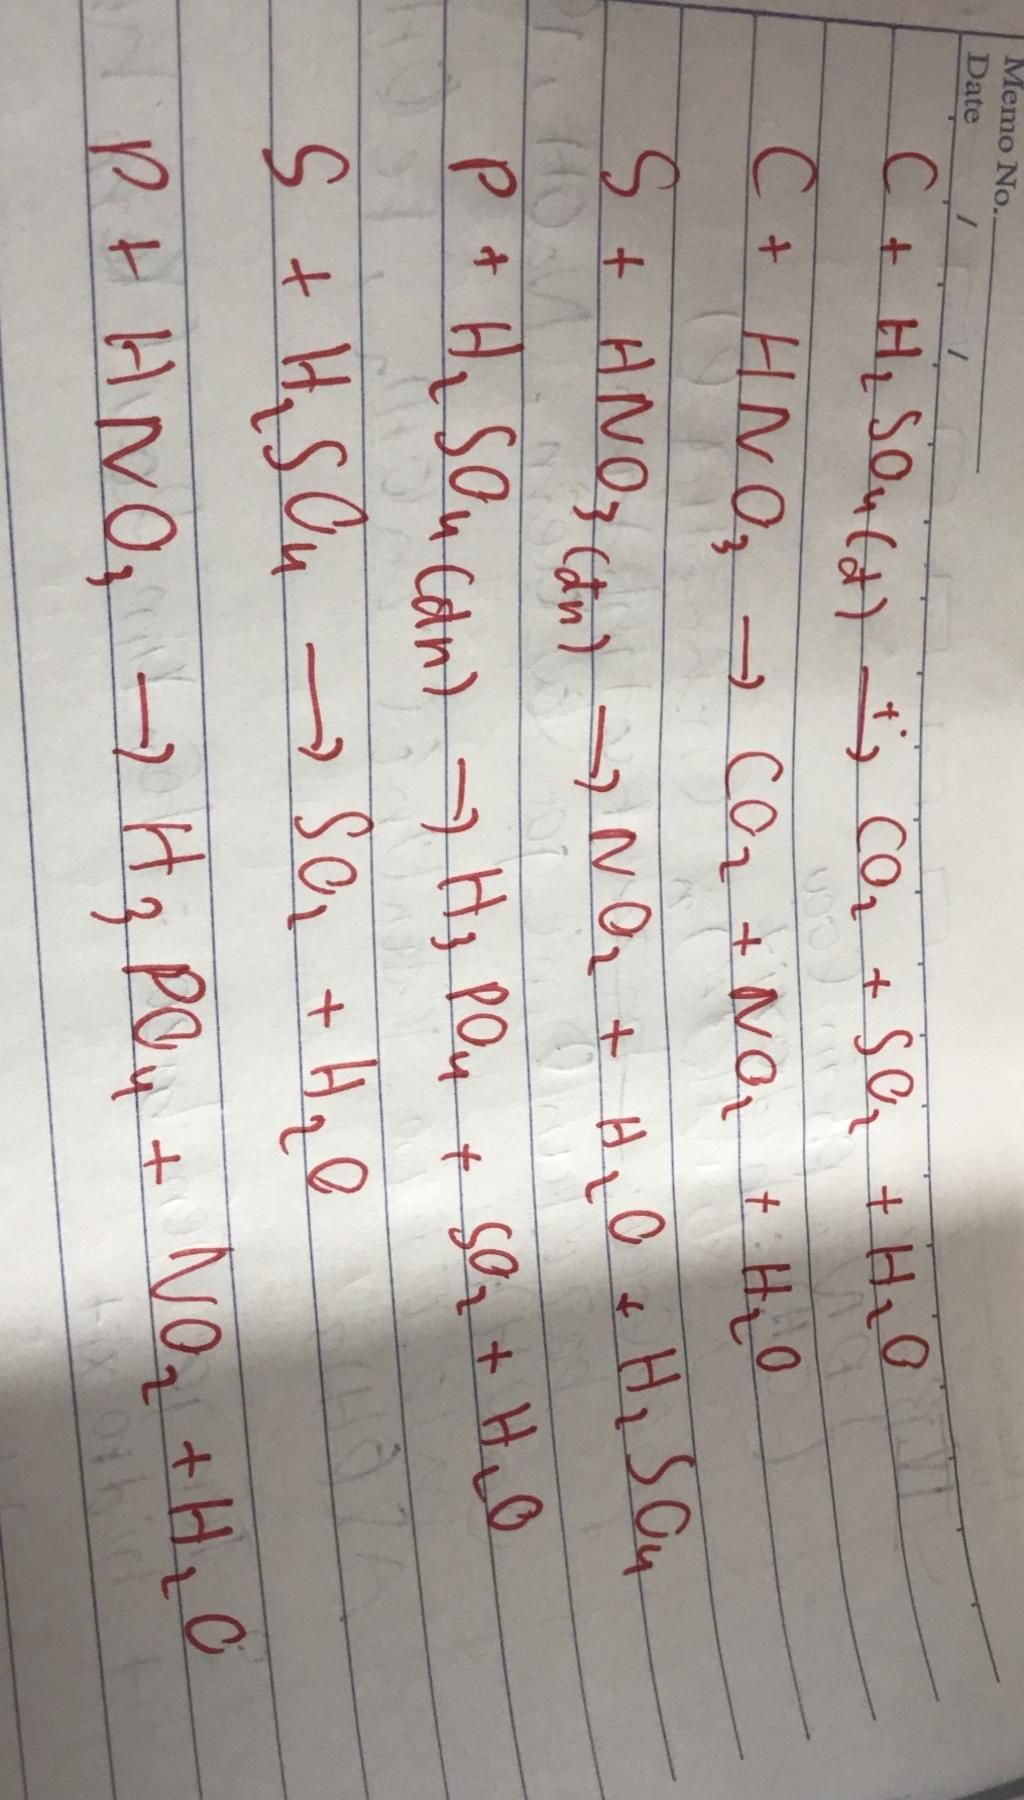 Memo No.
Date / /
C + H₂SO₄(đ) →t° CO₂ + SO₂ + H₂O
C + HNO₃ → CO₂ + NO₂ + H₂O
S + HNO₃(đn) → NO₂ + H₂O + H₂SO₄
P + H₂SO₄(đn) → H₃PO₄ + SO₂ + H₂O
S + H₂SO₄ → SO₂ + H₂O
P + HNO₃ → H₃PO₄ + NO₂ + H₂O